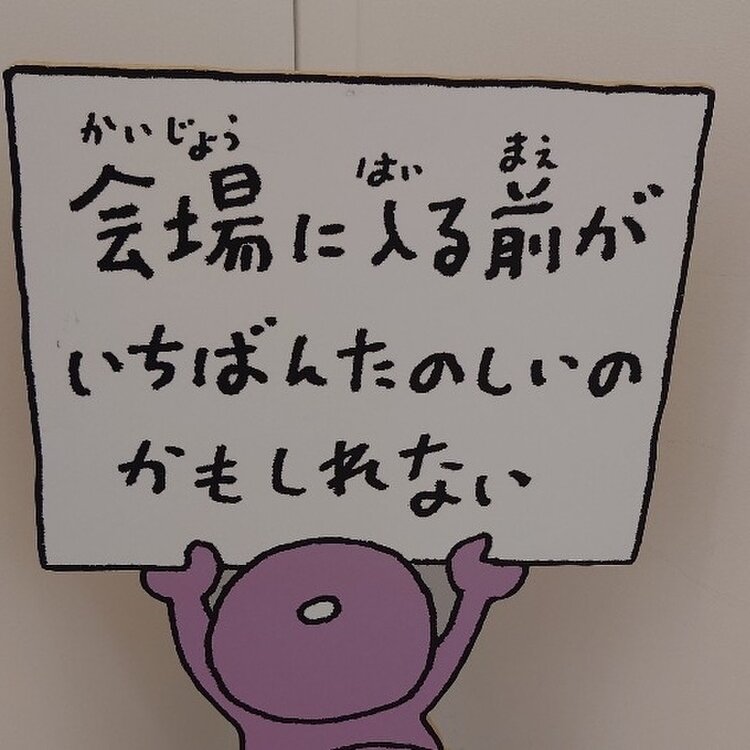 かいじょう はい まえ
会場に入る前が
いちばんたのしいの
かもしれない